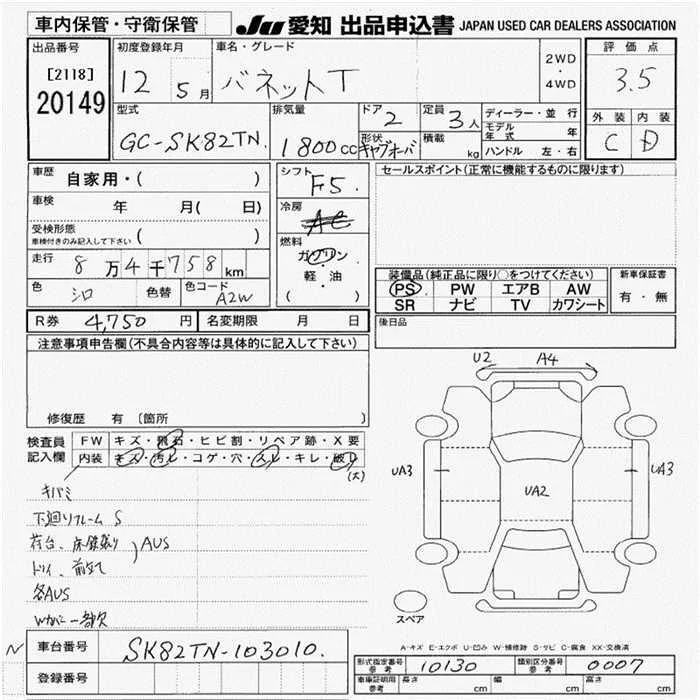 車内保管・守衛保管 JU 愛知 出品申込書 JAPAN USED CAR DEALERS ASSOCIATION
出品番号 初度登録年月 車名・グレード 評価点
[2118] 12 5月 バネットT 2WD・4WD 3.5
20149
型式 排気量 ドア 2 定員 3人 ディーラー・並行 外装 内装
GC-SK82TN. 1800cc 形状 キャブオーバ 積載 kg モデル年式 年 C D
ハンドル 左・右
車歴 自家用・( ) シフト F5. セールスポイント(正常に機能するものに限ります)
車検 年 月( 日) 冷房 AC
受検形態 ( )
車検付きのみ記入して下さい
燃料 ガソリン・軽・油 ( )
走行 8万4千758km
装備品(純正品に限り○をつけてください) 新車保証書
色 シロ 色替 色コード A2W PS PW エアB AW 有・無
SR ナビ TV カワシート
R券 4,750円 名変期限 月 日 後日品
注意事項申告欄(不具合内容等は具体的に記入して下さい)
修復歴 有 〔箇所 〕
U2 A4
検査員記入欄 FW キズ・飛石・ヒビ割・リペア跡・X要
内装 キズ・汚レ・コゲ・穴・スレ・キレ・破レ
(大)
UA3 UA2 UA3
キバミ
下廻りフレーム S
荷台、床鉄張り AUS
トリイ、前立て
各AUS
Wカバー一部欠
スペア
A-キズ E-エクボ U-凹み W-補修跡 S-サビ C-腐食 XX-交換済
N 車台番号 SK82TN-103010.
登録番号
形式指定番号 参考 10130 類別区分番号 参考 0007
車庫証明用 参考 長さ cm 幅 cm 高さ cm